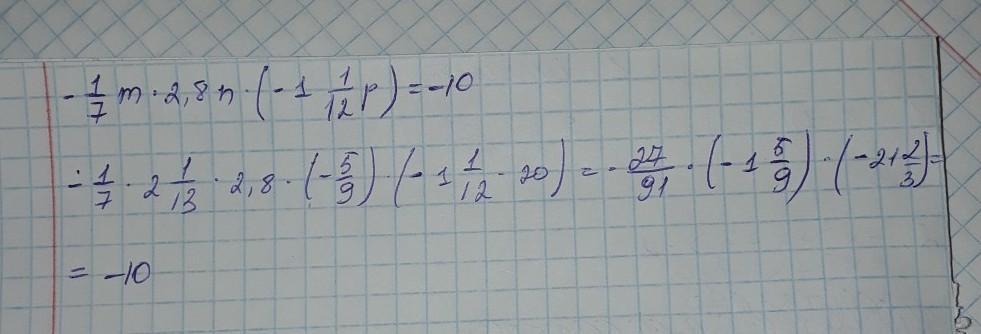 - 1/7 m · 2,8 n · (- 1 1/12 p) = -10
- 1/7 · 2 1/13 · 2,8 · (- 5/9) · (- 1 1/12 · 20) = - 27/91 · (- 1 5/9) · (- 21 2/3) =
= -10